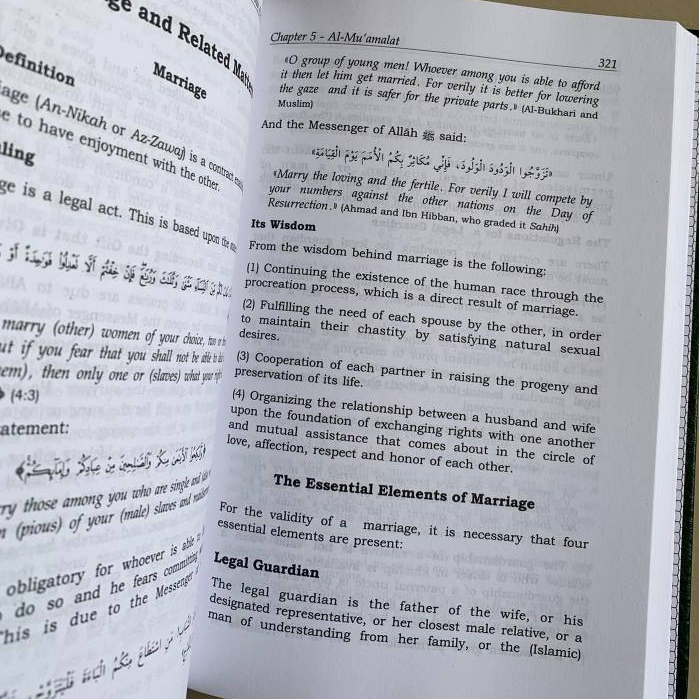 ge and Related Matte
Marriage
Definition
iage (An-Nikah or Az-Zawaj) is a contract
e to have enjoyment with the other.
ling
ge is a legal act. This is based upon the
marry (other) women of your choice, two or
ut if you fear that you shall not be able to
em), then only one or (slaves) what your
(4:3)
atement:
ry those among you who are single and
n (pious) of your (male) slaves and
obligatory for whoever is able
do so and he fears committing
This is due to the Messenger
Chapter 5 - Al-Mu'amalat
321
«O group of young men! Whoever among you is able to afford
it then let him get married. For verily it is better for lowering
the gaze and it is safer for the private parts.» (Al-Bukhari and
Muslim)
And the Messenger of Allâh ﷺ said:
«تَزَوَّجُوا الْوَدُودَ الْوَلُودَ، فَإِنِّي مُكَاثِرٌ بِكُمُ الْأُمَمَ يَوْمَ الْقِيَامَةِ»
«Marry the loving and the fertile. For verily I will compete by
your numbers against the other nations on the Day of
Resurrection.» (Ahmad and Ibn Hibban, who graded it Sahih)
Its Wisdom
From the wisdom behind marriage is the following:
(1) Continuing the existence of the human race through the
procreation process, which is a direct result of marriage.
(2) Fulfilling the need of each spouse by the other, in order
to maintain their chastity by satisfying natural sexual
desires.
(3) Cooperation of each partner in raising the progeny and
preservation of its life.
(4) Organizing the relationship between a husband and wife
upon the foundation of exchanging rights with one another
and mutual assistance that comes about in the circle of
love, affection, respect and honor of each other.
The Essential Elements of Marriage
For the validity of a marriage, it is necessary that four
essential elements are present:
Legal Guardian
The legal guardian is the father of the wife, or his
designated representative, or her closest male relative, or a
man of understanding from her family, or the (Islamic)